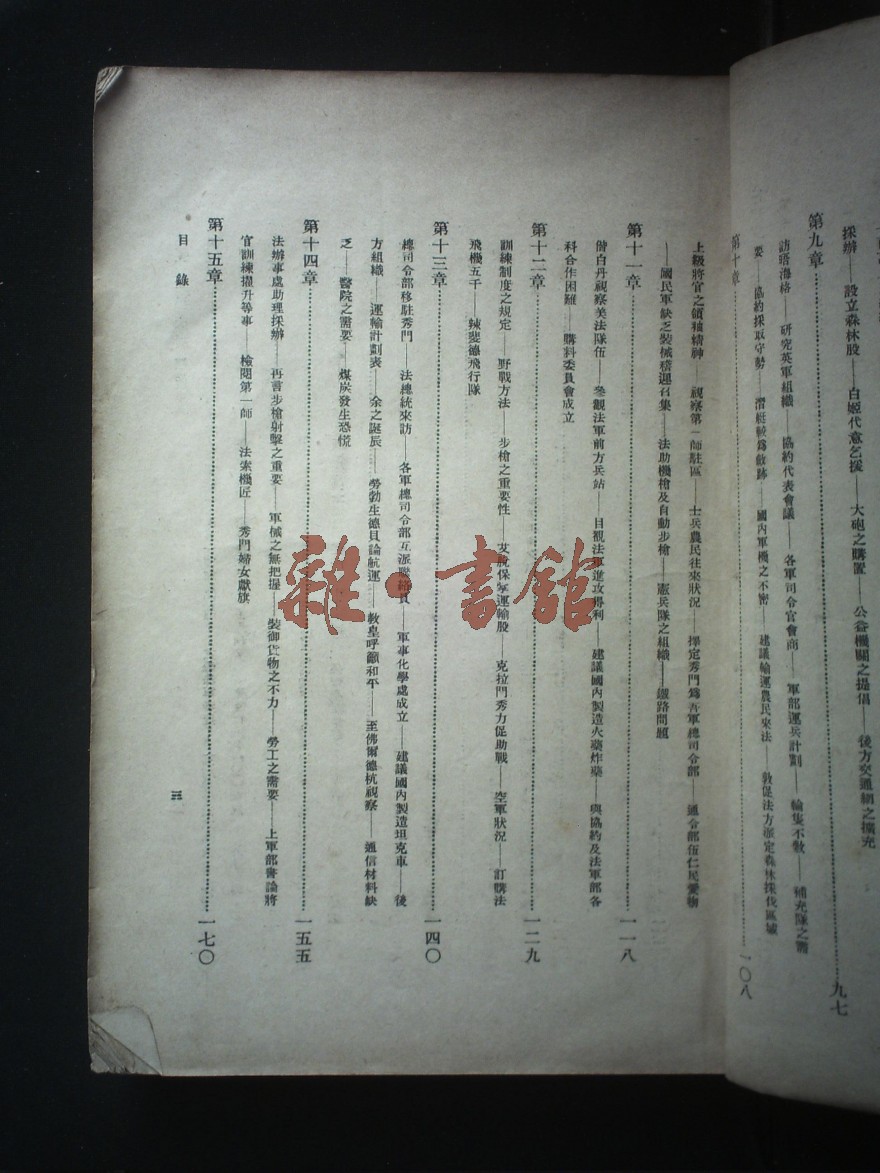 採辦——設立森林股——白姬代意乞援——大砲之購置——公益機關之提倡——後方交通網之擴充
第九章……九七
訪塔海格——研究英軍組織——協約代表會議——各軍司令官會商——軍部運兵計劃——輸隻不敷——補充隊之需
要——協約採取守勢——潛艇較爲斂跡——國內軍機之不密——建議輸運農民來法——敦促法方派定森林採伐區域
第十章……一〇八
上級將官之領袖精神——視察第一師駐區——士兵農民往來狀況——擇定秀門爲吾軍總司令部——通令部伍仁民愛物
——國民軍缺乏裝械稽遲召集——法助機槍及自動步槍——憲兵隊之組織——鐵路問題
第十一章……一一八
偕白丹視察美法隊伍——參觀法軍前方兵站——目覩法軍進攻勝利——建議國內製造火藥炸藥——與協約及法軍部各
科合作困難——購料委員會成立
第十二章……一二九
訓練制度之規定——野戰方法——步槍之重要性——艾脫保掌運輸股——克拉門秀力促助戰——空軍狀況——訂購法
飛機五千——辣斐德飛行隊
第十三章……一四〇
總司令部移駐秀門——法總統來訪——各軍總司令部互派聯絡員——軍事化學處成立——建議國內製造坦克車——後
方組織——運輸計劃表——余之誕辰——勞勃生德貝論航運——教皇呼籲和平——至佛爾德杭視察——通信材料缺
乏——醫院之需要——煤炭發生恐慌
第十四章……一五五
法辦事處助理採辦——再言步槍射擊之重要——軍械之無把握——裝卸貨物之不力——勞工之需要——上軍部書論將
官訓練擢升等事——檢閱第一師——法索機匠——秀門婦女獻旗
第十五章……一七〇
目錄
三
雜·書館